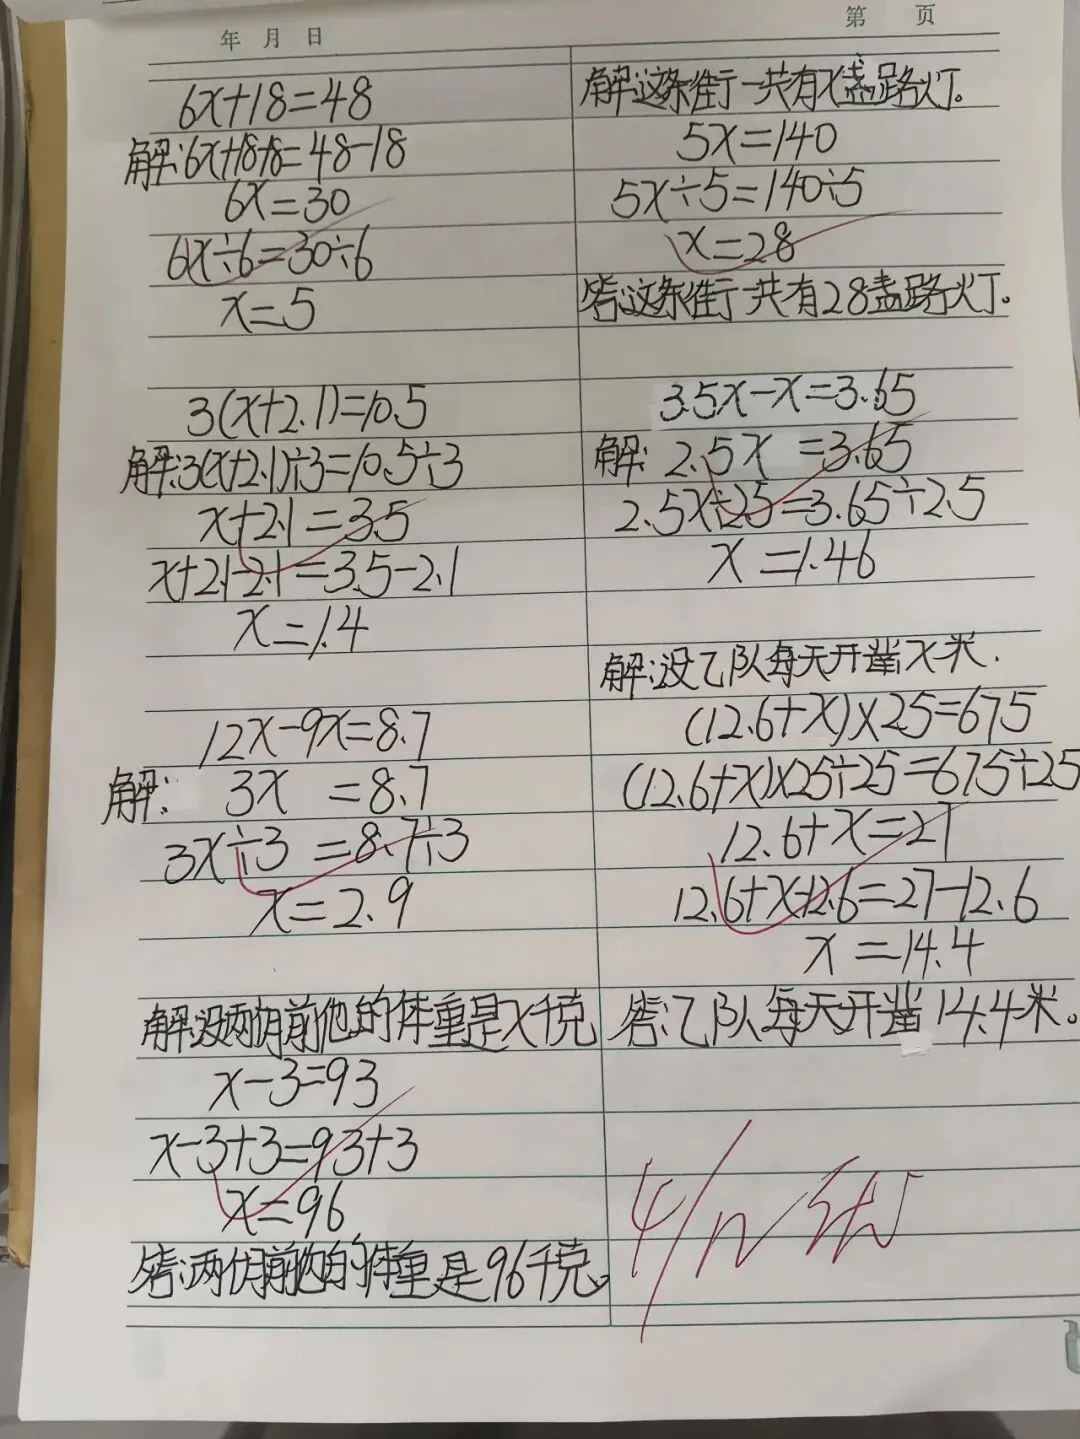 年 月 日
第 页
6x+18=48
解:6x+18+8=48-18
6x=30
6x÷6=30÷6
x=5
3(x+2.1)=10.5
解:3(x+2.1)÷3=10.5÷3
x+2.1=3.5
x+2.1-2.1=3.5-2.1
x=1.4
12x-9x=8.7
解: 3x =8.7
3x÷3 =8.7÷3
x=2.9
解:设两个月前他的体重是x千克
x-3=93
x-3+3=93+3
x=96
答:两个月前他的体重是96千克。
解:这条街一共有x盏路灯。
5x=140
5x÷5=140÷5
x=28
答:这条街一共有28盏路灯。
3.5x-x=3.65
解: 2.5x =3.65
2.5x÷2.5=3.65÷2.5
x=1.46
解:设乙队每天开凿x米.
(12.6+x)×25=675
(12.6+x)×25÷25=675÷25
12.6+x=27
12.6+x-12.6=27-12.6
x=14.4
答:乙队每天开凿14.4米。